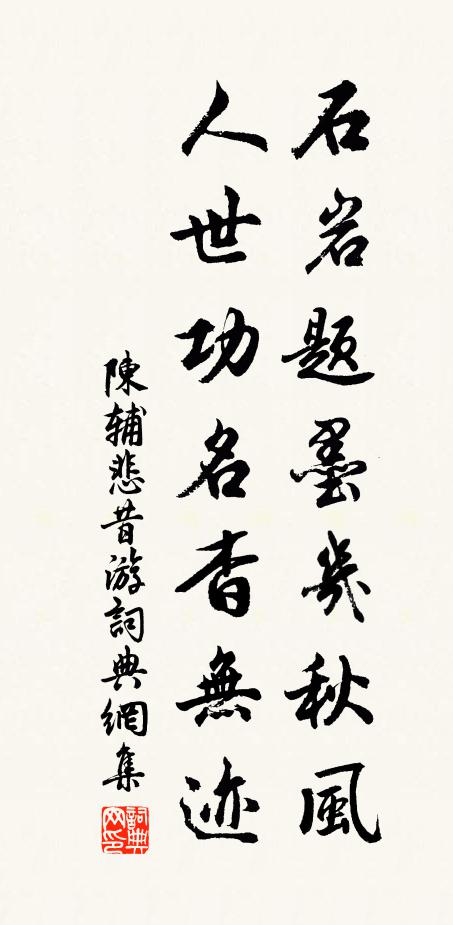 石岩题墨几秋風
人世功名杳無迹
陳辅悲昔游詞典網集
詞典网印